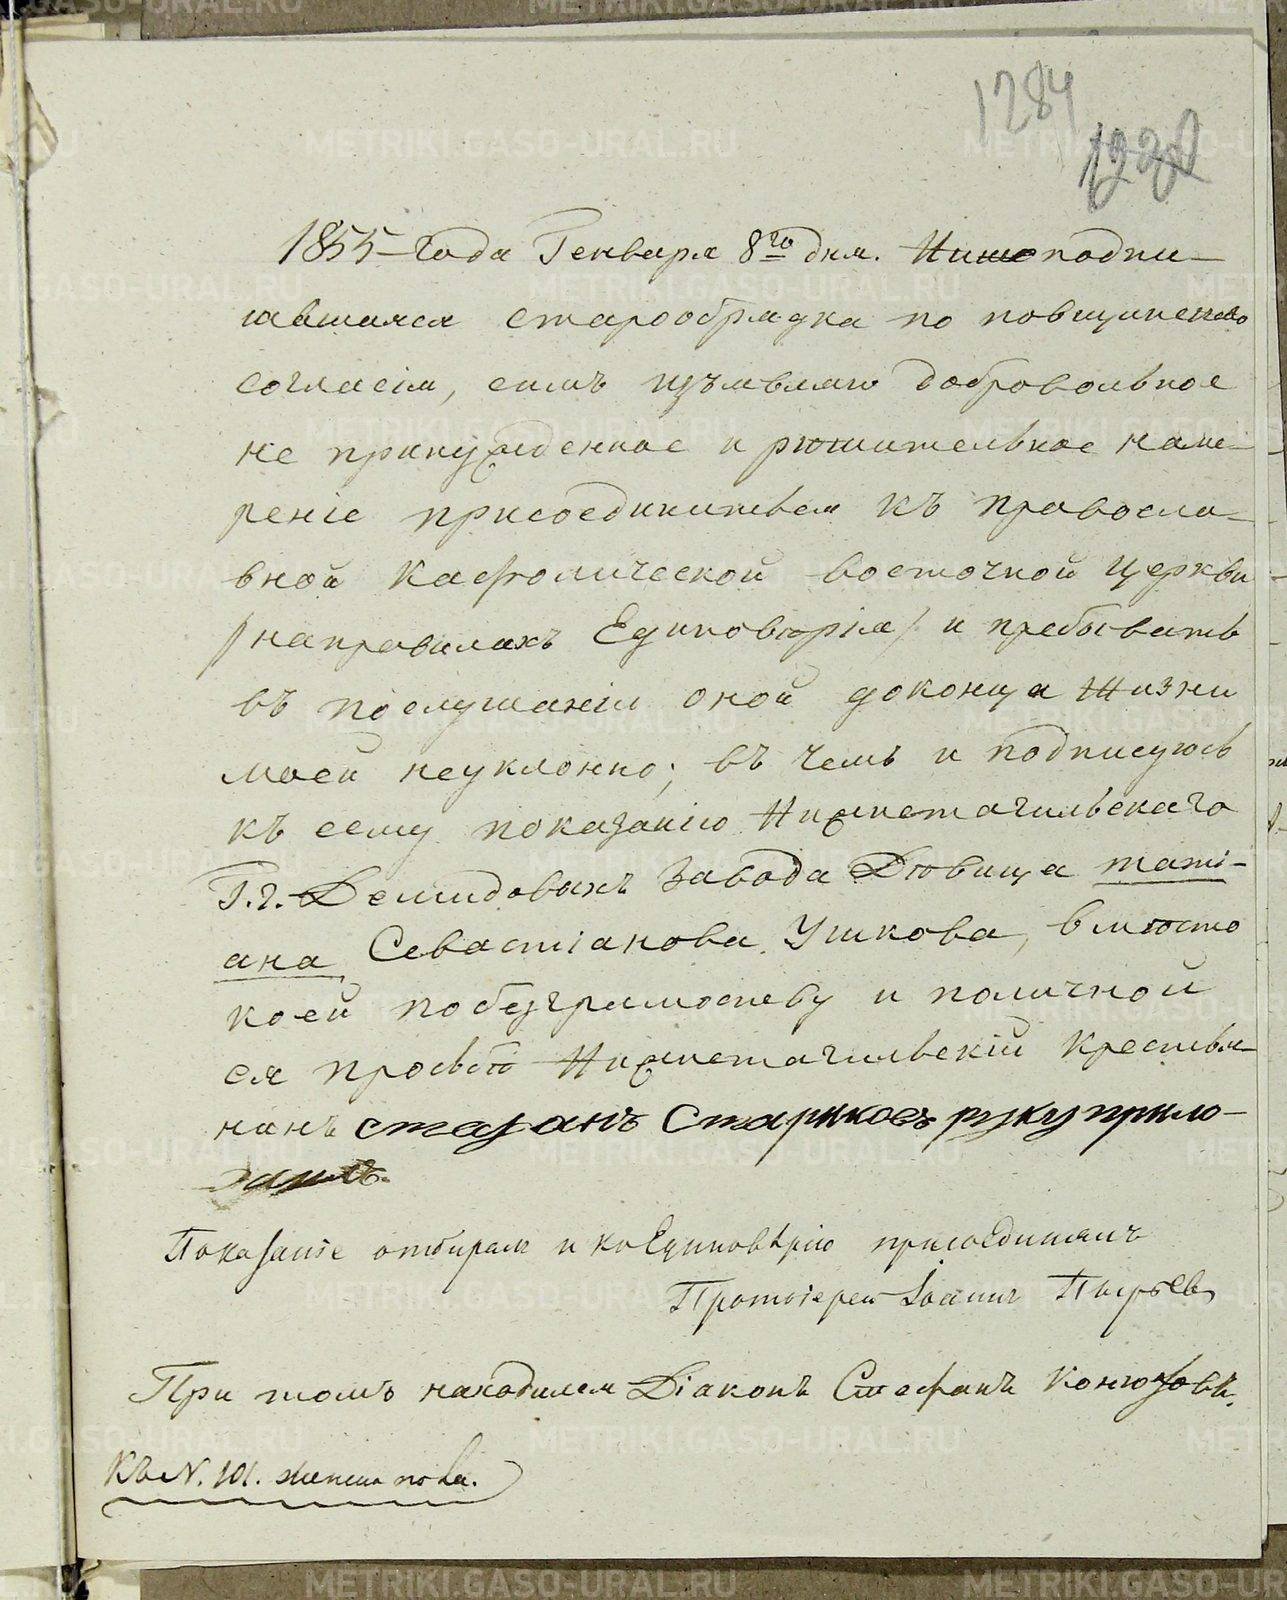 1284
1855 года Генваря 8го дня. Нижеподпи-
савшаяся старообрядка по
согласія, симъ изъявляю добровольное
не принужденное и рѣшительное наме-
реніе присоединиться къ правосла-
вной Кафолической восточной церкви
/на правилахъ Единовѣрія/ и пребывать
въ послушаніи оной до конца жизни
моей неуклонно; въ чемъ и подписуюсь
къ сему показанію Нижнетагильскаго
Г.г. Демидовыхъ завода Дѣвица Тати-
ана Севастіанова Ушкова, вмѣсто
коей по безграмотству и по личной
ея прозьбѣ Нижнетагильскій крестья-
нинъ Старковъ руку прило-
жилъ.
Показаніе отбиралъ и къ Единовѣрію присоединилъ
Протоіерей Іоаннъ Пырьевъ
При томъ находился Діаконъ Стефанъ Конюховъ.
Къ N. 101. женска пола.
METRIKI.GASO-URAL.RU